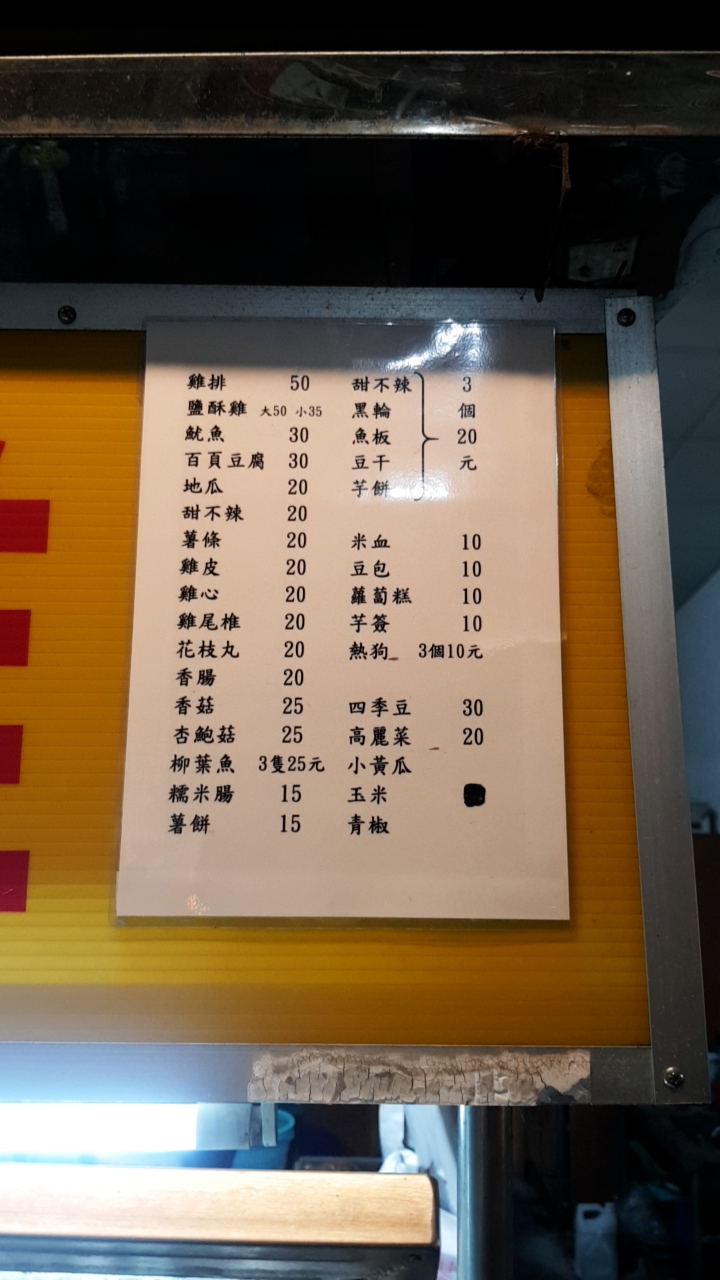 雞排 50
鹽酥雞 大50 小35
魷魚 30
百頁豆腐 30
地瓜 20
甜不辣 20
薯條 20
雞皮 20
雞心 20
雞尾椎 20
花枝丸 20
香腸 20
香菇 25
杏鮑菇 25
柳葉魚 3隻25元
糯米腸 15
薯餅 15
甜不辣 3
黑輪 個
魚板 20
豆干 元
芋餅
米血 10
豆包 10
蘿蔔糕 10
芋簽 10
熱狗 3個10元
四季豆 30
高麗菜 20
小黃瓜
玉米
青椒